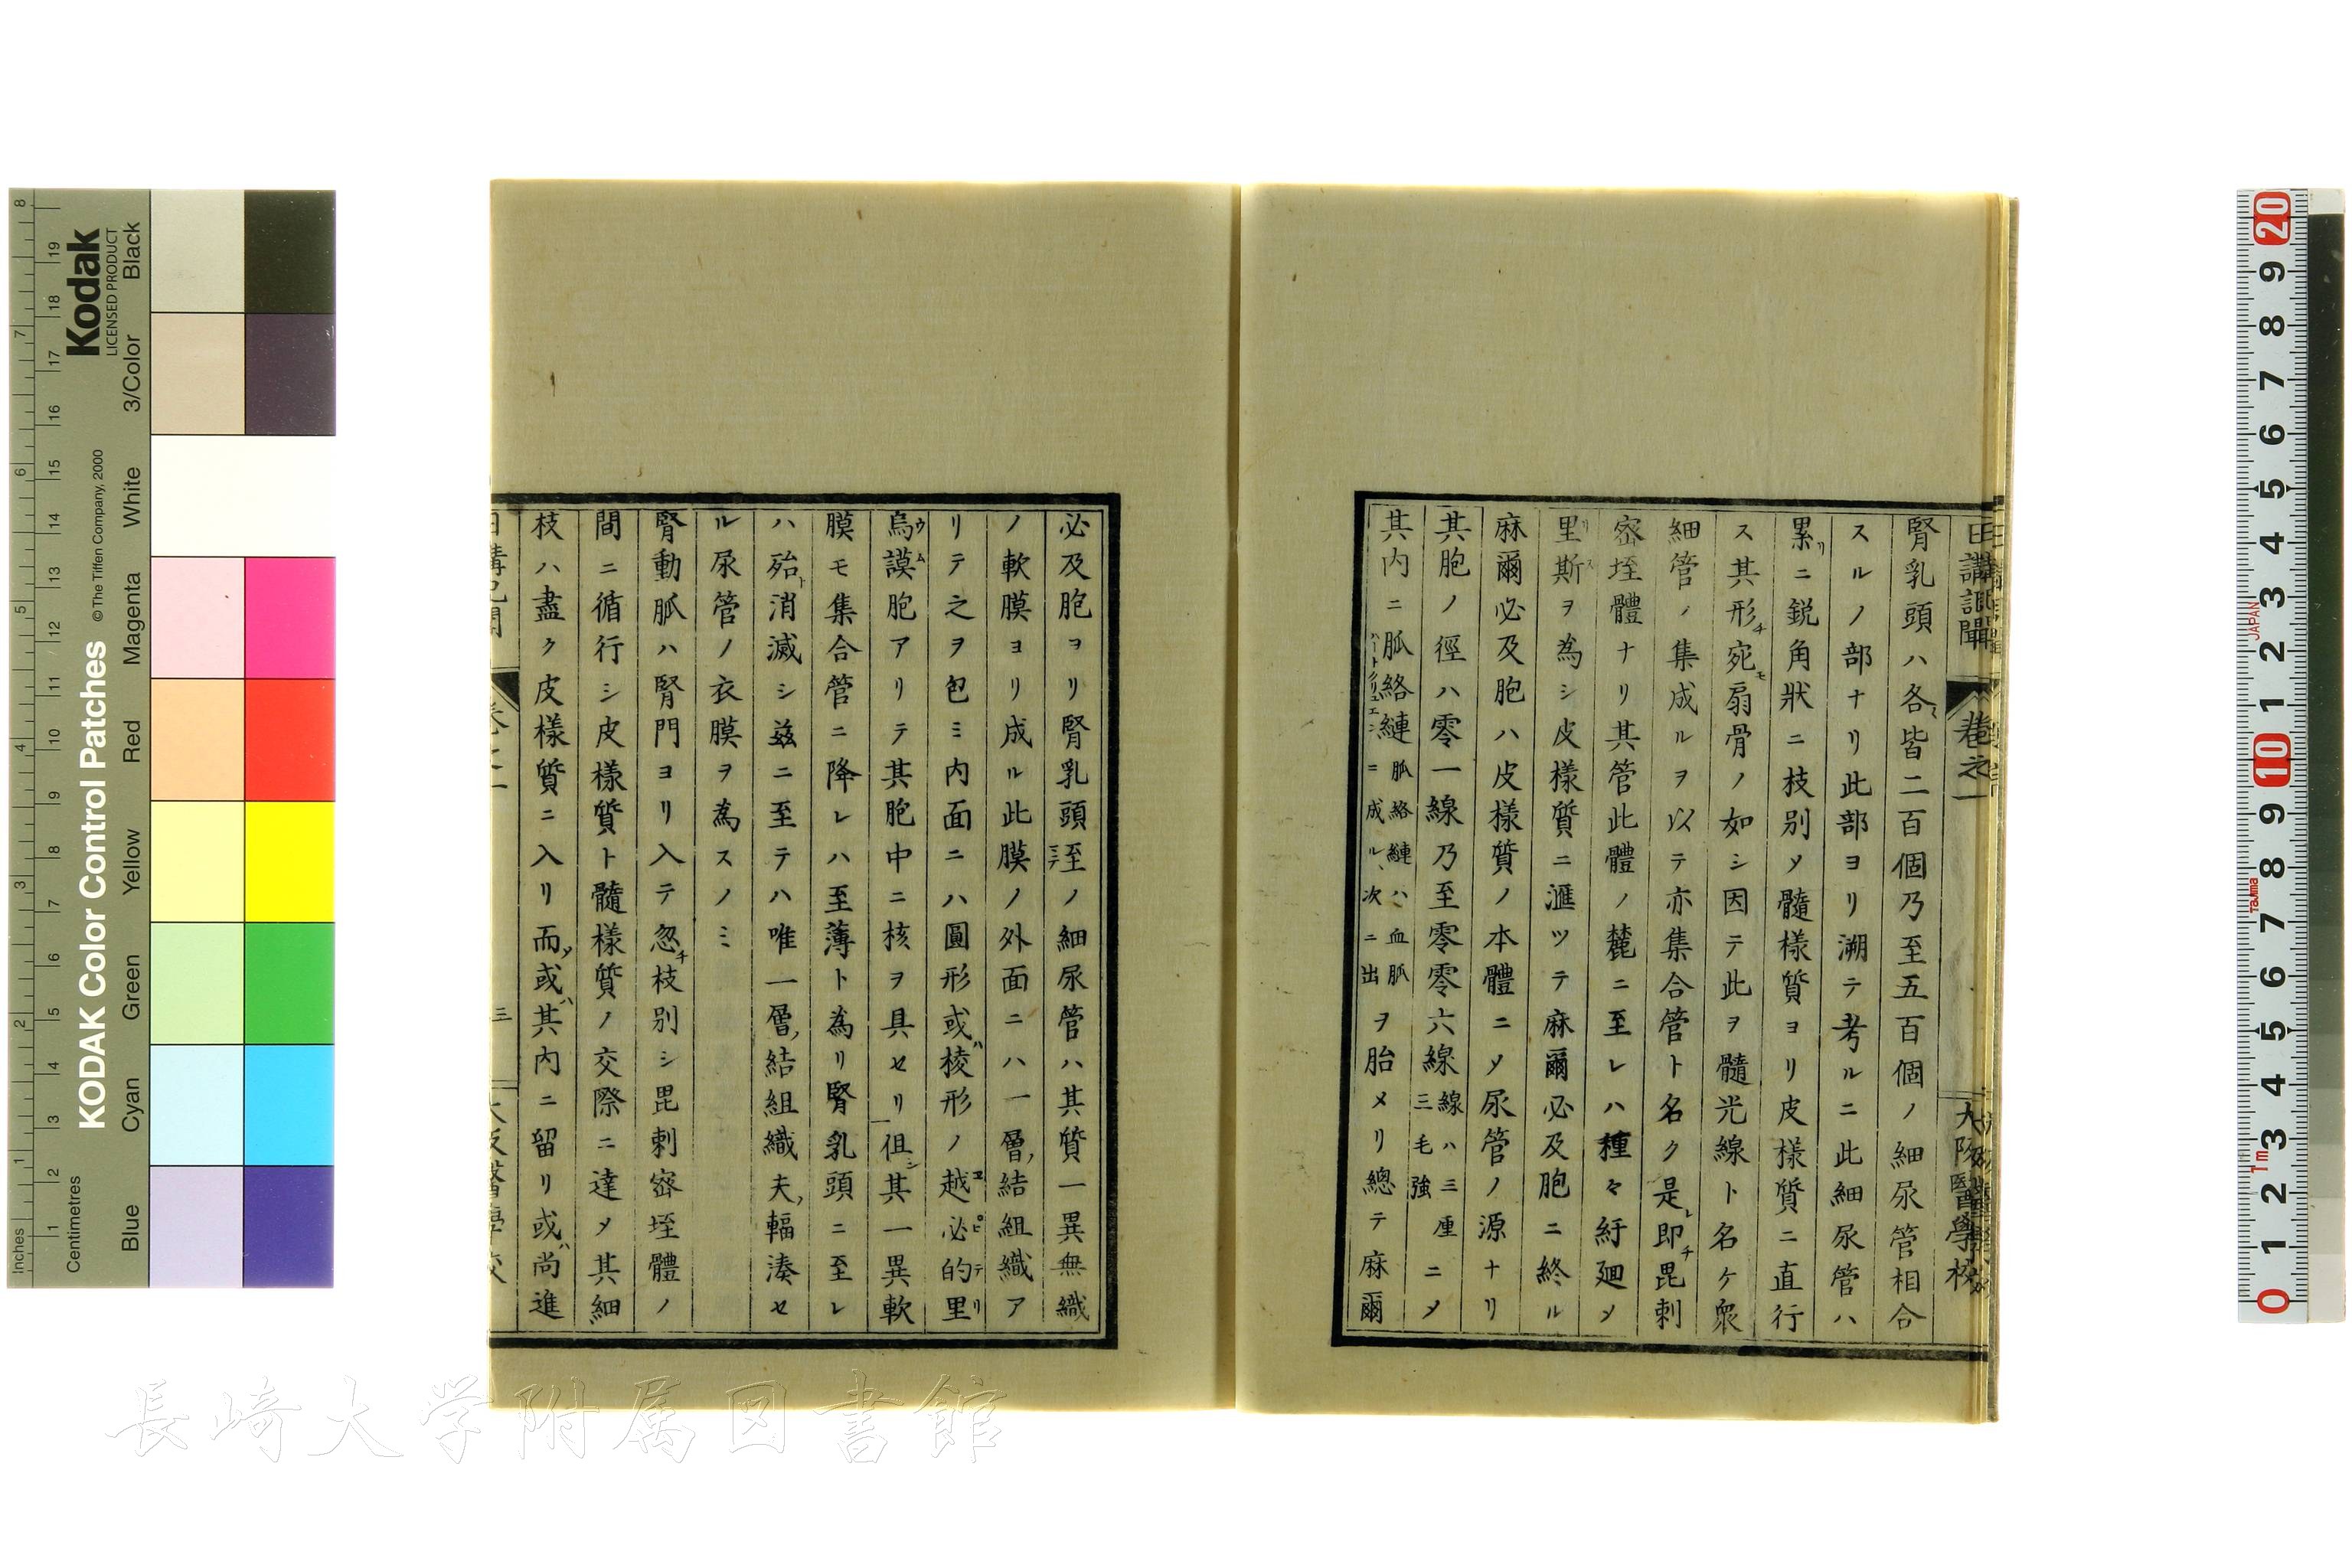 日講記聞 卷之一 大阪醫學校
腎乳頭ハ各ミ皆二百個乃至五百個ノ細尿管相合
スルノ部ナリ此部ヨリ溯テ考ルニ此細尿管ハ
累リニ鋭角狀ニ枝別メ髓樣質ヨリ皮樣質ニ直行
ス其形チ宛モ扇骨ノ如シ因テ此ヲ髓光線ト名ケ衆
細管ノ集成ルヲ以テ亦集合管ト名ク是レ即チ毘剌
密垤體ナリ其管此體ノ麓ニ至レハ種々紆廻メ
里斯ヲ為シ皮樣質ニ滙ツテ麻爾必及胞ニ終ル
麻爾必及胞ハ皮樣質ノ本體ニメ尿管ノ源ナリ
其胞ノ徑ハ零一線乃至零零六線線ハ三厘三毛強ニメ
其内ニ脈絡縺脈絡縺ハ血脈ニ成ル、次ニ出ヲ胎メリ總テ麻爾
必及胞ヨリ腎乳頭至ノ細尿管ハ其質一異無織
ノ軟膜ヨリ成ル此膜ノ外面ニハ一層ノ結組織ア
リテ之ヲ包ミ内面ニハ圓形或ハ棱形ノ越必的里
烏謨胞アリテ其胞中ニ核ヲ具セリ徂シ其一異軟
膜モ集合管ニ降レハ至薄ト為リ腎乳頭ニ至レ
ハ殆ト消滅シ茲ニ至テハ唯一層ノ結組織夫ノ輻湊セ
ル尿管ノ衣膜ヲ為スノミ
腎動脈ハ腎門ヨリ入テ忽チ枝別シ毘剌密垤體ノ
間ニ循行シ皮樣質ト髓樣質ノ交際ニ達メ其細
枝ハ盡ク皮樣質ニ入リ而メ或ハ其内ニ留リ或ハ尚進
三
長崎大学附属図書館
KODAK Color Control Patches
©The Tiffen Company, 2000
Kodak
LICENSED PRODUCT
Inches
Centimetres
Blue Cyan Green Yellow Red Magenta White 3/Color Black
JAPAN
Tajima
1m